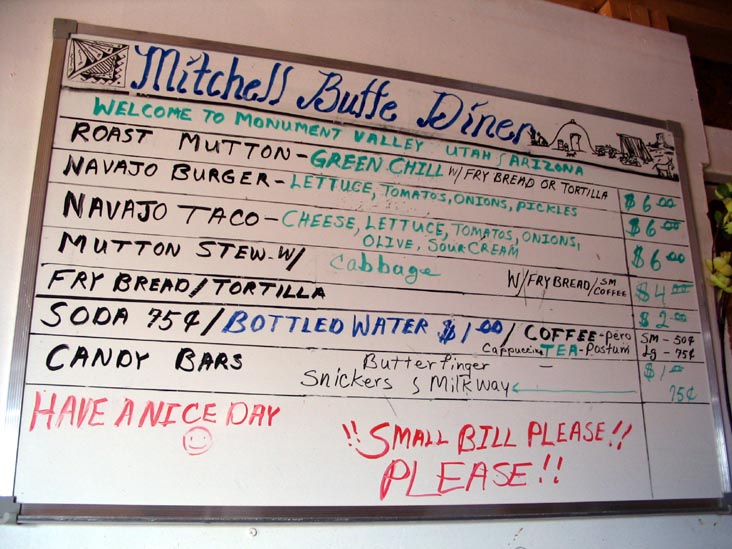 Mitchell Buffe Diner
WELCOME TO MONUMENT VALLEY UTAH & ARIZONA
ROAST MUTTON - GREEN CHILL W/ FRY BREAD OR TORTILLA $6.00
NAVAJO BURGER - LETTUCE, TOMATOS, ONIONS, PICKLES $6.00
NAVAJO TACO - CHEESE, LETTUCE, TOMATOS, ONIONS, $6.00
OLIVE, SOUR CREAM
MUTTON STEW - W/ Cabbage W/ FRY BREAD / SM COFFEE $4.00
FRY BREAD / TORTILLA $2.00
SODA 75¢ / BOTTLED WATER $1.00 / COFFEE - pero SM - 50¢
Cappuccino TEA - Postum Lg - 75¢
CANDY BARS Butterfinger - $1.0
Snickers & Milkway 75¢
HAVE A NICE DAY
!! SMALL BILL PLEASE!!
PLEASE!!